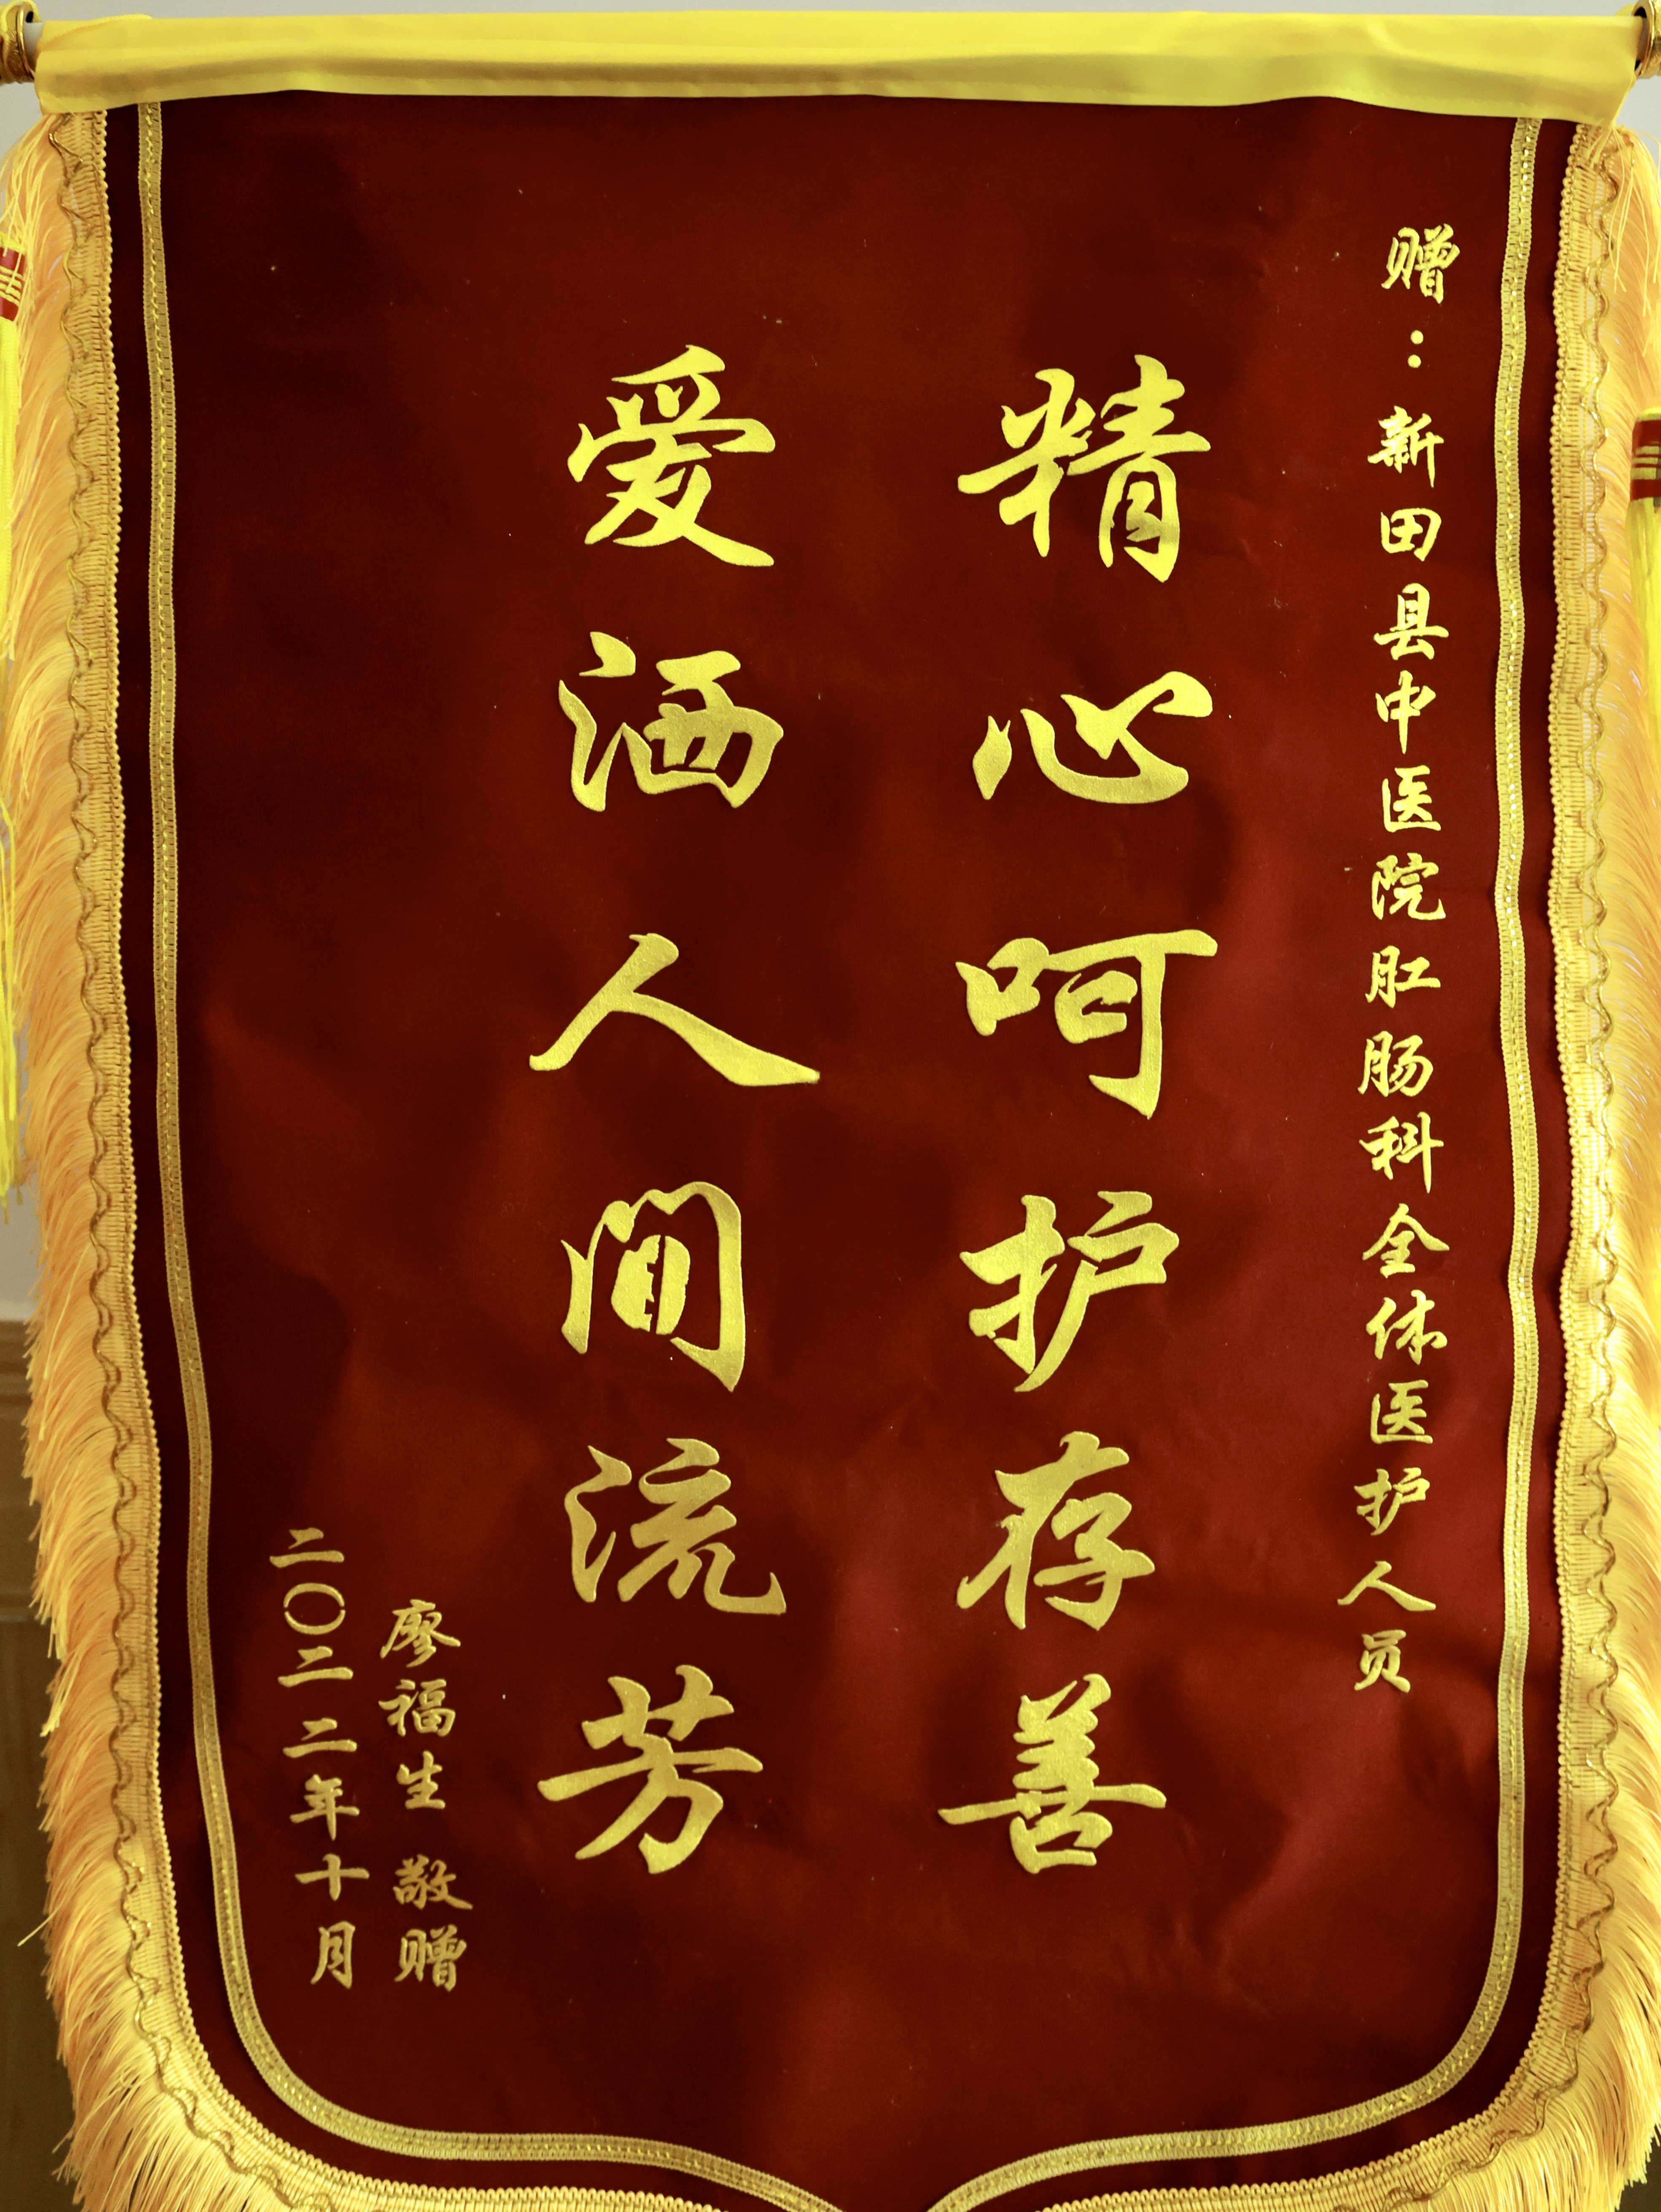 赠：新田县中医院肛肠科全体医护人员
精心呵护存善
爱洒人间流芳
廖福生 敬赠
二〇二二年十月